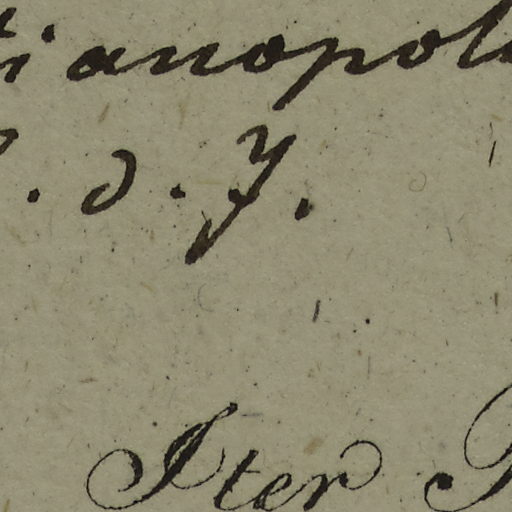 tianopol
. d. J.
Iter